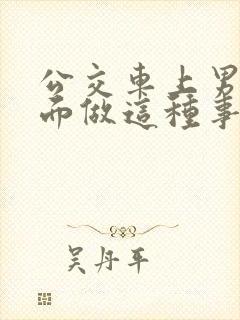 公交車上男
而做這種事
吳丹平